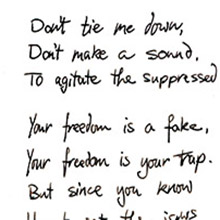 Don't tie me down,
Don't make a sound,
To agitate the suppressed

Your freedom is a fake,
Your freedom is your trap.
But since you know